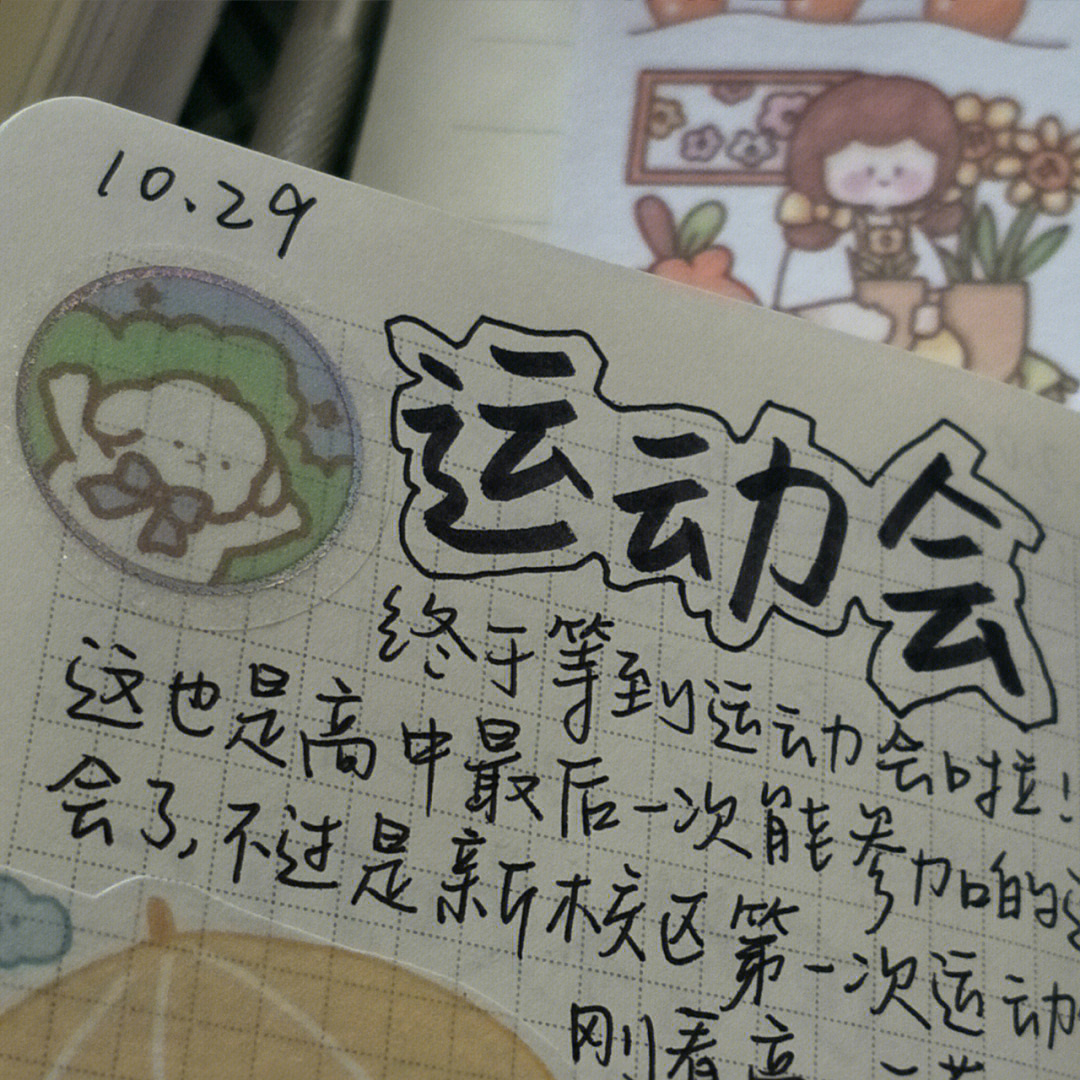 10.29
运动会
终于等到运动会啦！
这也是高中最后一次能参加的运
会了,不过是新校区第一次运动
刚看高一